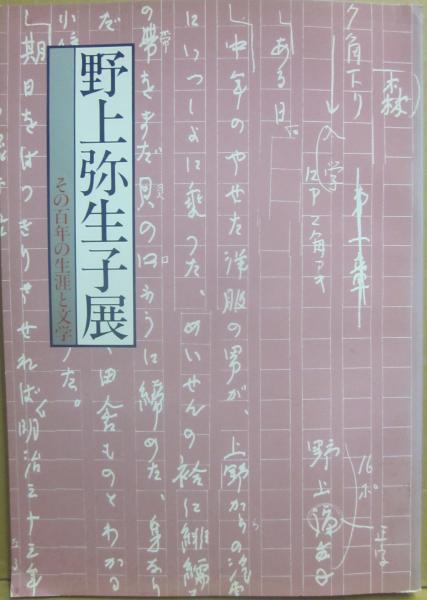 野上弥生子展
その百年の生涯と文学
森
7角下り
学
第一章
野上彌生子
16ポ
正字
ある日
中年のやせた洋服の男が、上野からの汽車
にいつしよに乗つた、めいせんの袷に
の帯をまだ貝の口ふうに締めた、身なり
田舎ものとわかる
た。
期日をはつきりさせれば、明治三十三年